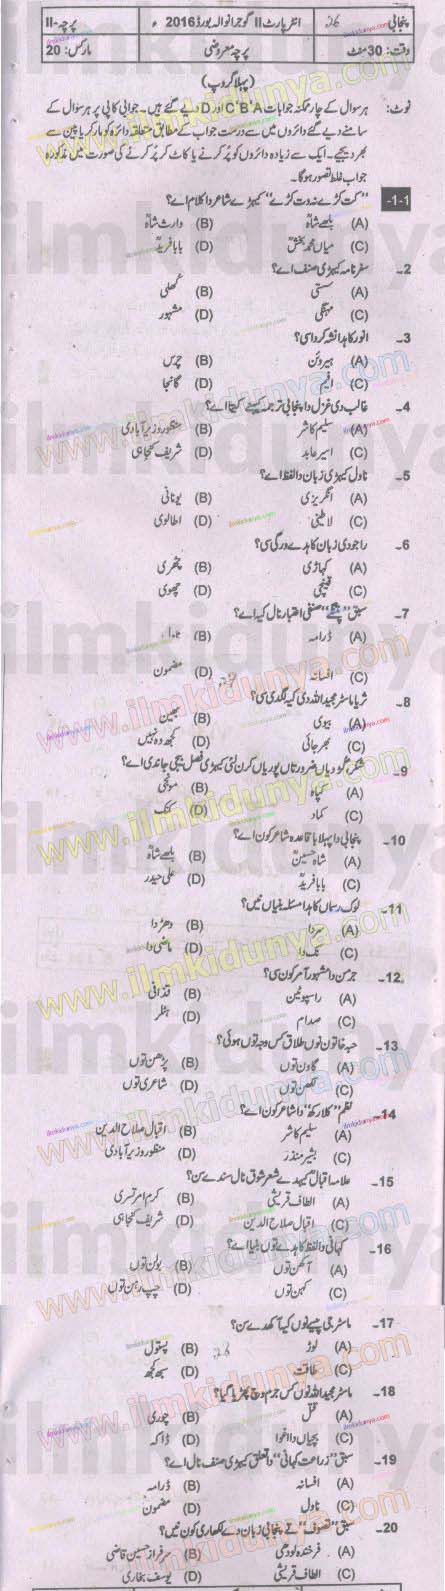 پنجابی 26 انٹرپارٹ II گوجرانوالہ بورڈ 2016ء پرچہ-II
وقت: 30 منٹ پرچہ معروضی مارکس: 20
(پہلا گروپ)
نوٹ: ہر سوال کے چار ممکنہ جوابات A'B'C اور D دیے گئے ہیں۔ جوابی کاپی پر ہر سوال کے
سامنے دیے گئے دائروں میں سے درست جواب کے مطابق متعلقہ دائرہ کو مارکر یا پین سے
بھر دیجیے۔ ایک سے زیادہ دائروں کو پُر کرنے یا کاٹ کر پُر کرنے کی صورت میں مذکورہ
جواب غلط تصور ہوگا۔
1-1- "کت کڑے نہ وت کڑے" کیہڑے شاعر دا کلام اے؟
(A) بلھے شاہؒ (B) وارث شاہؒ
(C) میاں محمد بخشؒ (D) بابا فریدؒ
2- سفرنامہ کیہڑی صنف اے؟
(A) سستی (B) کُھلی
(C) مہنگی (D) مشہور
3- انور کاہدا نشہ کردا سی؟
(A) ہیروئن (B) چرس
(C) افیم (D) گانجا
4- غالب دی غزل دا پنجابی ترجمہ کیہنے کیتا اے؟
(A) سلیم کاشر (B) منظور وزیر آبادی
(C) اسیر عابد (D) شریف کنجاہی
5- ناول کیہڑی زبان دا لفظ اے؟
(A) انگریزی (B) یونانی
(C) لاطینی (D) اطالوی
6- راجو دی زبان کاہدے ورگی سی؟
(A) کہاڑی (B) چھری
(C) قینچی (D) چھوی
7- سبق صنفی اعتبار نال کیہ اے؟
(A) ڈرامہ (B)
(C) افسانہ (D) مضمون
8- ثریا ماسٹر مجید اللہ دی کیہ لگدی سی؟
(A) بیوی (B) بھین
(C) بھرجائی (D) کجھ وہ نہیں
9- شکر گڑ دیاں ضرورتاں پوریاں کرن لئی کیہڑی فصل بیجی جاندی اے؟
(A) کپاہ (B) مونجی
(C) کماد (D) کنک
10- پنجابی دا پہلا باقاعدہ شاعر کون اے؟
(A) شاہ حسینؒ (B) بلھے شاہؒ
(C) بابا فریدؒ (D) علی حیدر
11- لوک رسماں کاہدا مسئلہ بنیاں نیں؟
(A) (B) دھڑ دا
(C) نک دا (D) ماضی دا
12- جرمن دا مشہور آمر کون سی؟
(A) راسپوٹین (B) قذافی
(C) صدام (D) ہٹلر
13- حبہ خاتون نوں طلاق کس وجہ توں ہوئی؟
(A) گاون توں (B) پڑھن توں
(C) لکھن توں (D) شاعری توں
14- نظم "کلا رکھ" دا شاعر کون اے؟
(A) سلیم کاشر (B) اقبال صلاح الدین
(C) بشیر منذر (D) منظور وزیر آبادی
15- علامہ اقبالؒ کیہدے شعر شوق نال سندے سن؟
(A) الطاف قریشی (B) کرم امرتسری
(C) اقبال صلاح الدین (D) شریف کنجاہی
16- کہانی دا لفظ کاہدے توں بنیا اے؟
(A) آکھن توں (B) بولن توں
(C) کہن توں (D) چپ رہن توں
17- ماسٹر جی پیسے نوں کیہ آکھدے سن؟
(A) لوڑ (B) پستول 26
(C) طاقت (D) سبھ کجھ
18- ماسٹر مجید اللہ نوں کس جرم وچ پھڑیا گیا؟
(A) قتل (B) چوری
(C) بچیاں دا اغوا (D) ڈاکہ
19- سبق "زراعت کہانی" دا تعلق کیہڑی صنف نال اے؟
(A) افسانہ (B) ڈرامہ
(C) ناول (D) مضمون
20- سبق "تصوف تے پنجابی زبان" دے لکھاری کون نیں؟
(A) فرخندہ لودھی (B) سرفراز حسین قاضی
(C) الطاف قریشی (D) یوسف بخاری
www.ilmkidunya.com